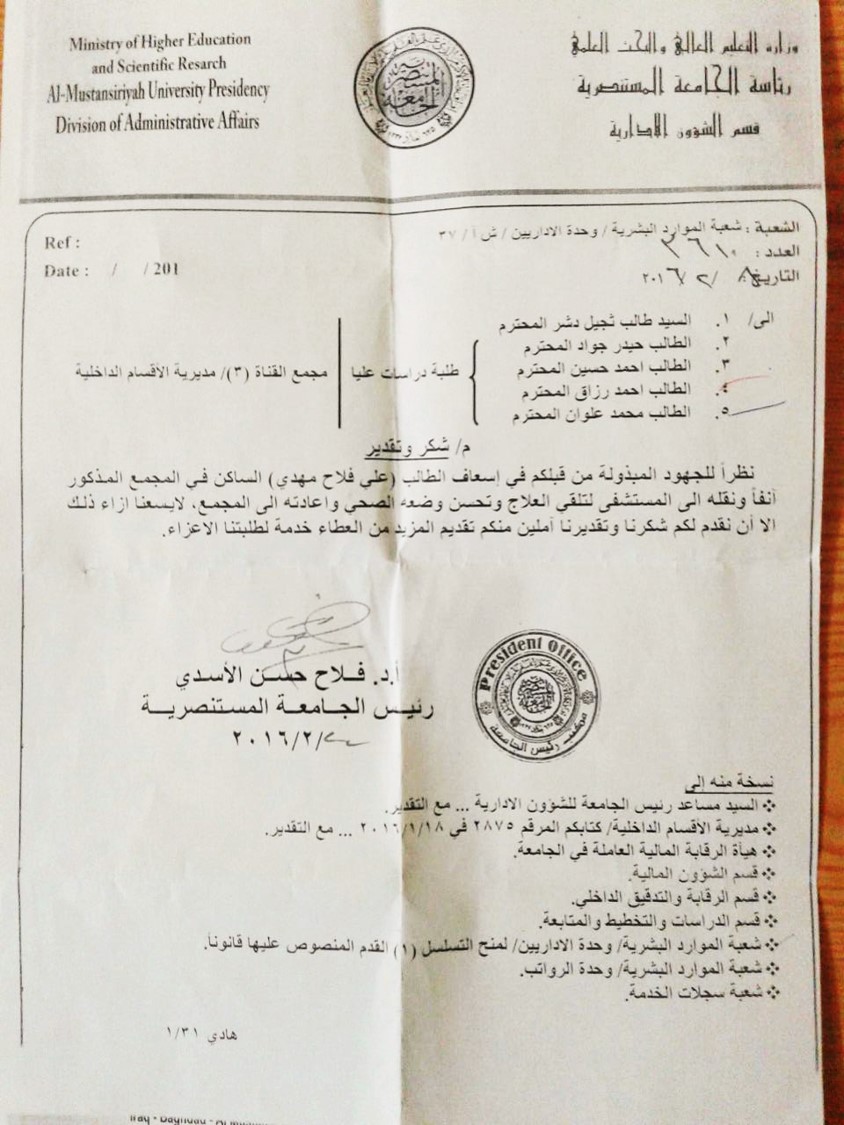 Ministry of Higher Education
and Scientific Resarch
Al-Mustansiriyah University Presidency
Division of Administrative Affairs
وزارة التعليم العالي والبحث العلمي
رئاسة الجامعة المستنصرية
قسم الشؤون الادارية
Ref :
Date : / / 201
الشعبة : شعبة الموارد البشرية / وحدة الاداريين / ش أ / ٣٧
العدد :
التاريخ: /٢/ ٢٠١٦
الى/ ١. السيد طالب ثجيل دشر المحترم
٢. الطالب حيدر جواد المحترم
٣. الطالب احمد حسين المحترم
٤. الطالب احمد رزاق المحترم
٥. الطالب محمد علوان المحترم
طلبة دراسات عليا
مجمع القناة (٣)/ مديرية الأقسام الداخلية
م/ شكر وتقدير
نظراً للجهود المبذولة من قبلكم في إسعاف الطالب (علي فلاح مهدي) الساكن في المجمع المذكور
آنفاً ونقله الى المستشفى لتلقي العلاج وتحسن وضعه الصحي واعادته الى المجمع، لايسعنا ازاء ذلك
الا أن نقدم لكم شكرنا وتقديرنا آملين منكم تقديم المزيد من العطاء خدمة لطلبتنا الاعزاء.
أ.د. فلاح حسن الأسدي
رئيس الجامعة المستنصرية
/٢/٢٠١٦
President Office
مكتب رئيس الجامعة
نسخة منه إلى
❖ السيد مساعد رئيس الجامعة للشؤون الادارية ... مع التقدير.
❖ مديرية الأقسام الداخلية/ كتابكم المرقم ٢٨٧٥ في ٢٠١٦/١/١٨ ... مع التقدير.
❖ هيأة الرقابة المالية العاملة في الجامعة.
❖ قسم الشؤون المالية.
❖ قسم الرقابة والتدقيق الداخلي.
❖ قسم الدراسات والتخطيط والمتابعة.
❖ شعبة الموارد البشرية/ وحدة الاداريين/ لمنح التسلسل (١) القدم المنصوص عليها قانوناً.
❖ شعبة الموارد البشرية/ وحدة الرواتب.
❖ شعبة سجلات الخدمة.
هادي ١/٣١